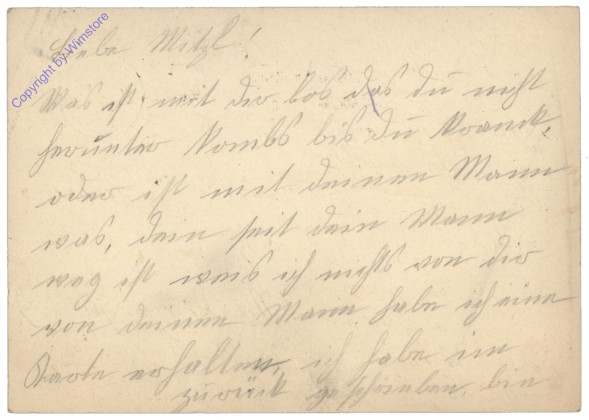 Liebe Mitzl!
Copyright by Wimstore
Was ist mit dir los das du nicht
herunter kombs bis du krank,
oder ist mit deinen Mann
was, den seit dein Mann
weg ist weis ich nichts von dir
von deinen Mann habe ich eine
Karte erhalten, ich habe im
zurück geschrieben, bin